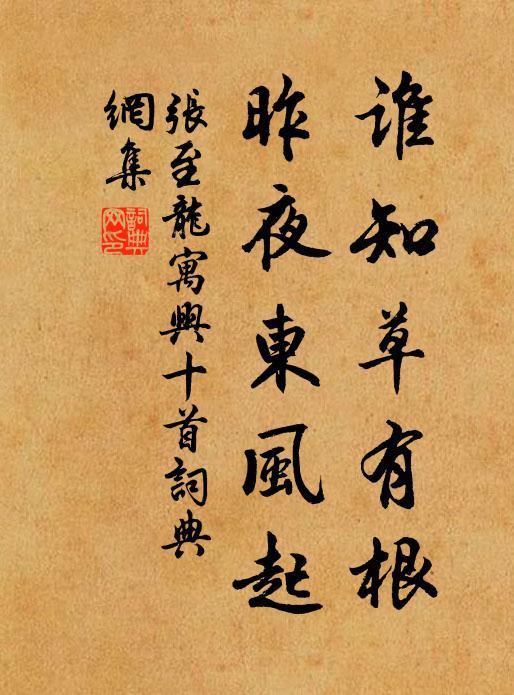 誰知草有根
昨夜東風起
張至龍寓興十首詞典
網集
詞典
网印